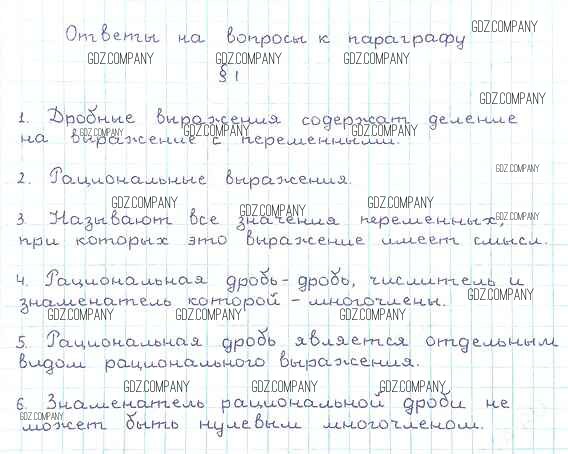 Ответы на вопросы к параграфу GDZ.COMPANY
GDZ.COMPANY GDZ.COMPANY GDZ.COMPANY
§ 1
GDZ.COMPANY
1. Дробные выражения содержат деление
GDZ.COMPANY GDZ.COMPANY GDZ.COMPANY
на выражение с переменными.
GDZ.COMPANY
2. Рациональные выражения.
GDZ.COMPANY GDZ.COMPANY GDZ.COMPANY
3. Называют все значения переменных, GDZ.COMPANY
при которых это выражение имеет смысл.
4. Рациональная дробь - дробь, числитель и
знаменатель которой - многочлены. GDZ.COMPANY
GDZ.COMPANY GDZ.COMPANY GDZ.COMPANY
5. Рациональная дробь является отдельным
видом рационального выражения.
GDZ.COMPANY GDZ.COMPANY GDZ.COMPANY
6. Знаменатель рациональной дроби не
GDZ.COMPANY
может быть нулевым многочленом.